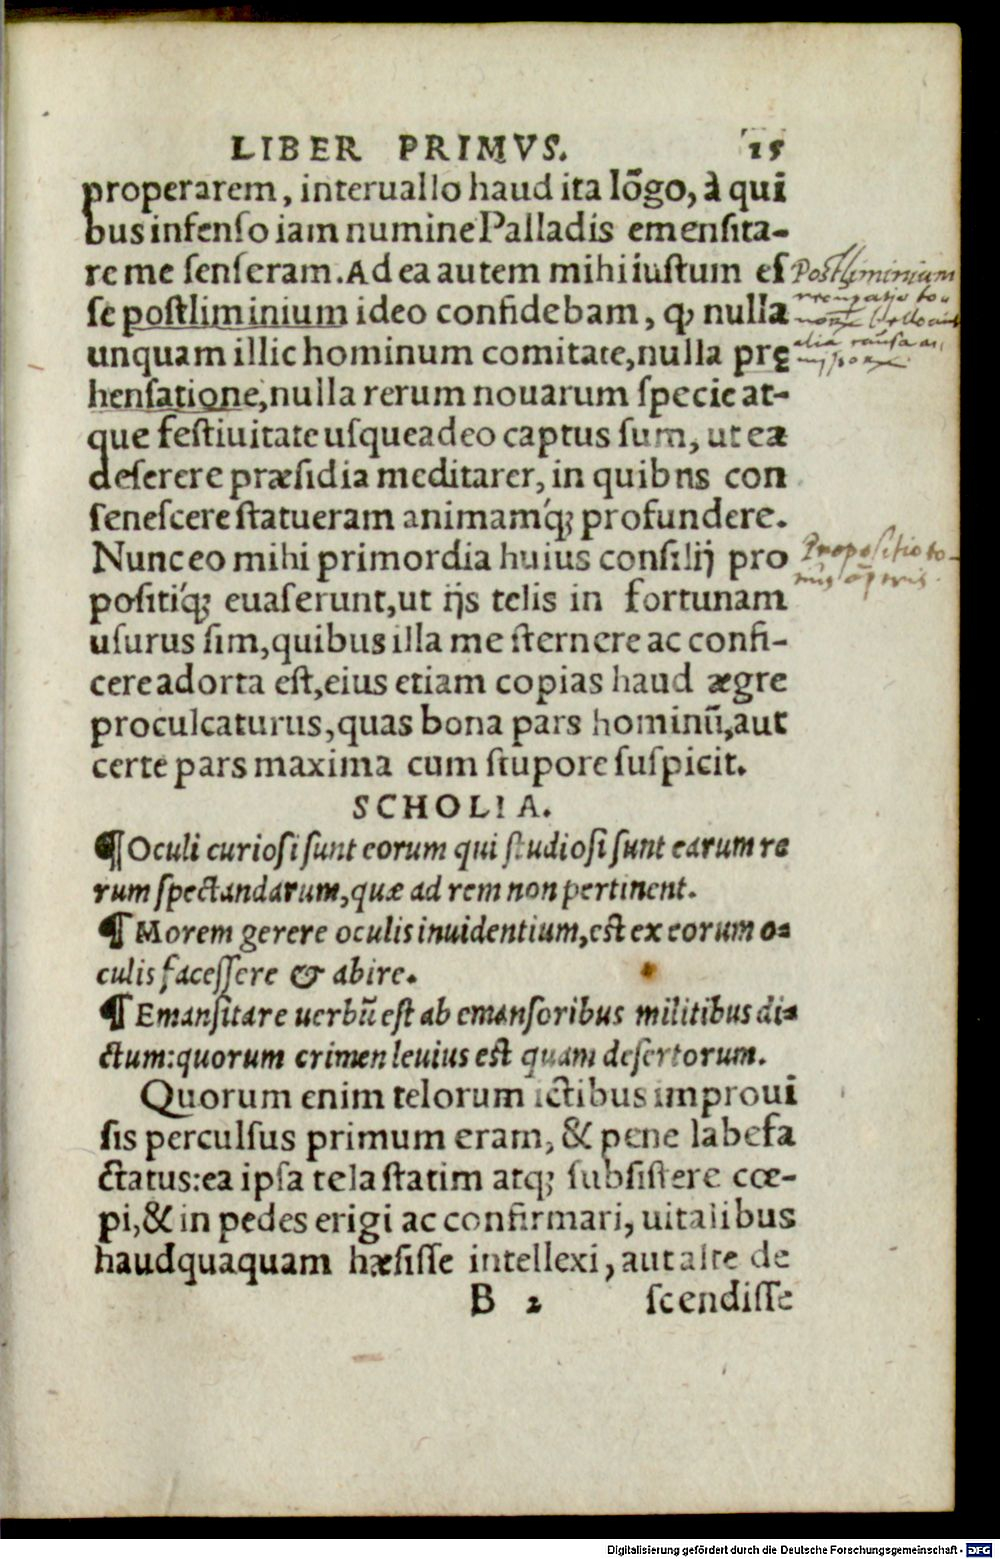 LIBER PRIMVS. 15
properarem, interuallo haud ita lõgo, à qui
bus infenso iam numine Palladis emensita-
re me senseram. Ad ea autem mihi iustum es
se postliminium ideo confidebam, q; nulla
unquam illic hominum comitate, nulla prę
hensatione, nulla rerum nouarum specie at-
que festiuitate usqueadeo captus sum, ut ea
deserere præsidia meditarer, in quibns con
senescere statueram animamq́; profundere.
Nunc eo mihi primordia huius consilij pro
positiq́; euaserunt, ut ijs telis in fortunam
usurus sim, quibus illa me sternere ac confi-
cere adorta est, eius etiam copias haud ægre
proculcaturus, quas bona pars hominũ, aut
certe pars maxima cum stupore suspicit.
SCHOLIA.
¶ Oculi curiosi sunt eorum qui studiosi sunt earum re
rum spectandarum, quæ ad rem non pertinent.
¶ Morem gerere oculis inuidentium, est ex eorum o-
culis facessere & abire.
¶ Emansitare uerbũ est ab emansoribus militibus di-
ctum: quorum crimen leuius est quam desertorum.
Quorum enim telorum ictibus improui
sis perculsus primum eram, & pene labefa
ctatus: ea ipsa tela statim atq; subsistere cœ-
pi, & in pedes erigi ac confirmari, uitalibus
haudquaquam hæsisse intellexi, aut alte de
B 2 scendisse
Postliminium
Propositio to-
Digitalisierung gefördert durch die Deutsche Forschungsgemeinschaft - DFG